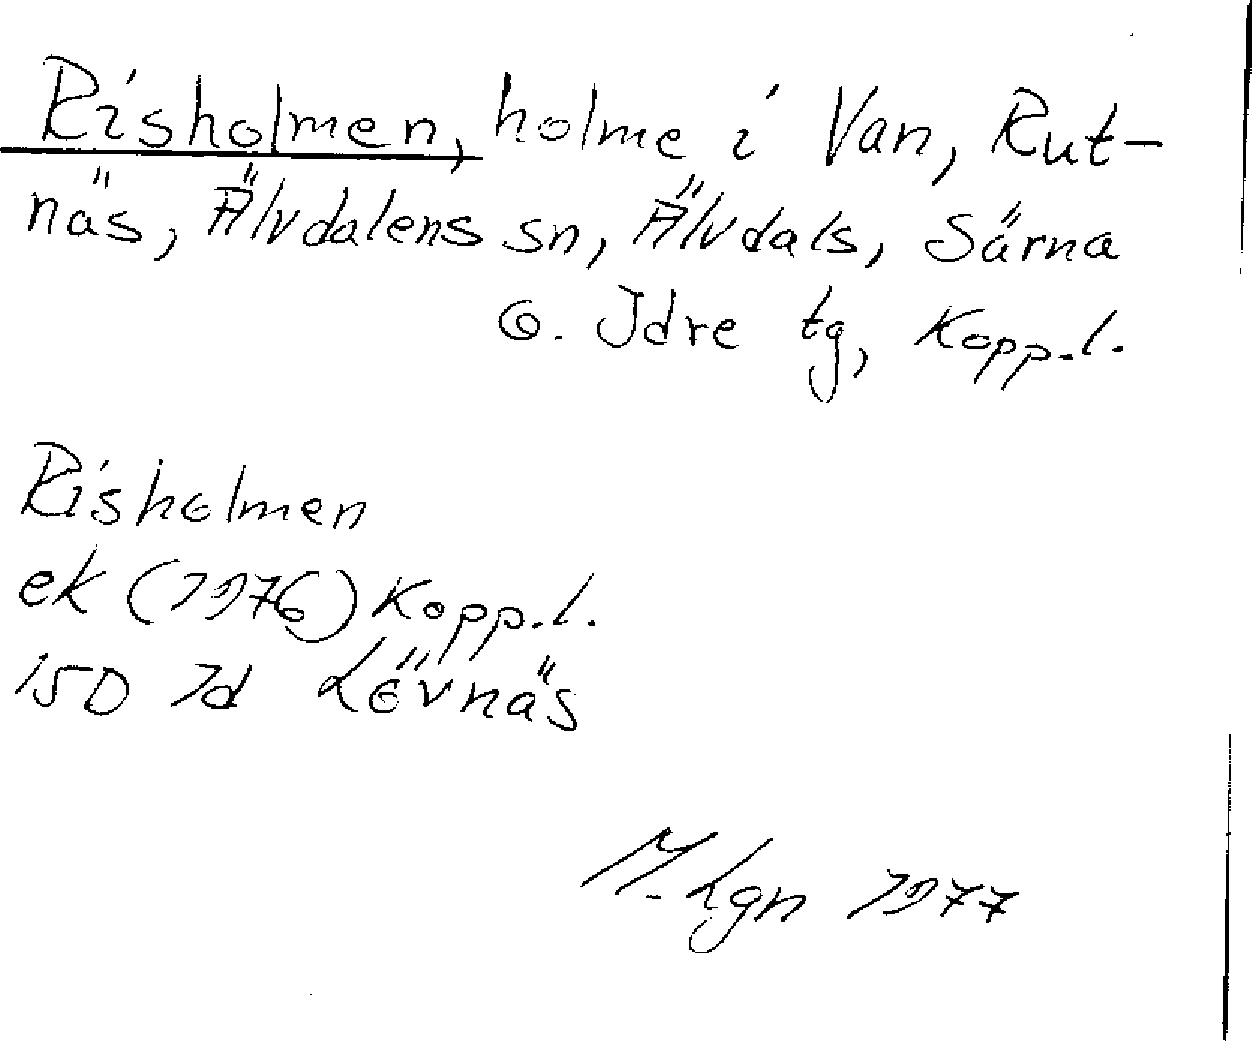 Risholmen, holme i Van, Rut-
näs, Älvdalens sn, Älvdals, Särna
o. Idre tg, Kopp.l.
Risholmen
ek (1976) Kopp.l.
15D 7d Lövnäs
M. Lgn 1977